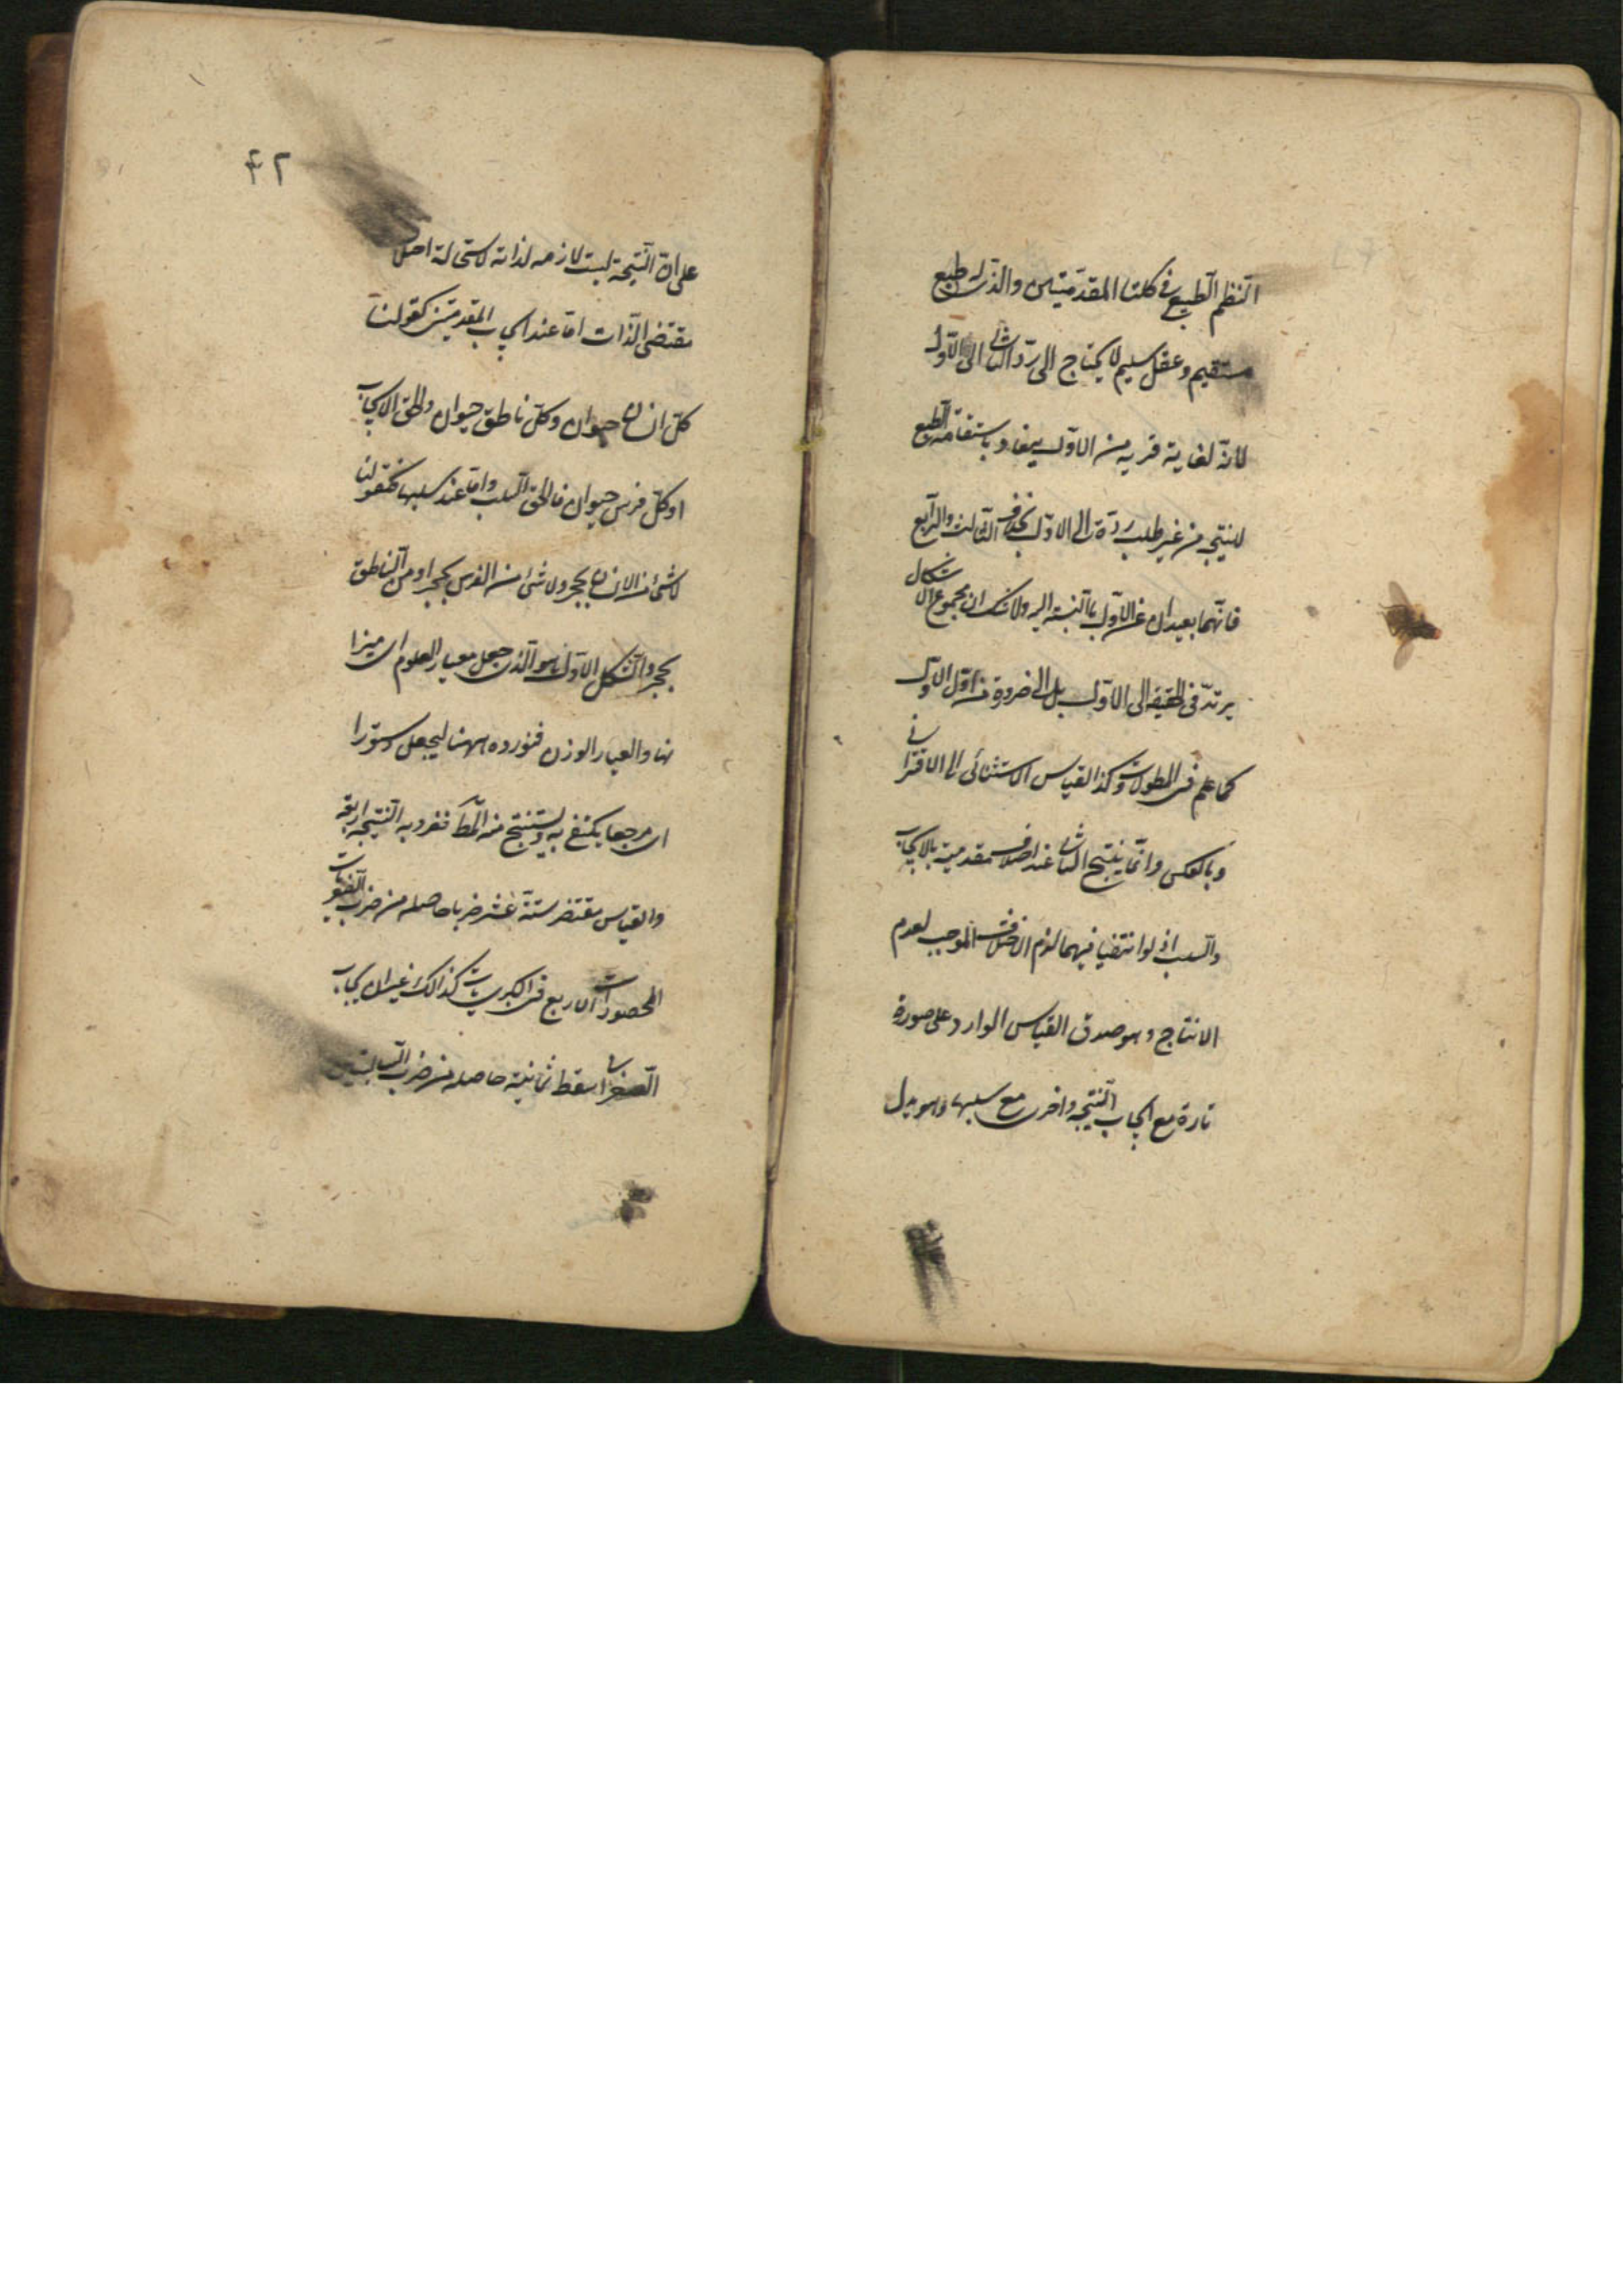 النظم الطبيعي في كلتا المقدمتين والذي له طبع
مستقيم وعقل سليم لا يحتاج الى رد الثاني الى الاول
لانه لغاية قربه من الاول يفاد باستقامة الطبع
لينتج من غير طلب رده الى الاول بخلاف الثالث والرابع
فانهما بعيدان عن الاول بالنسبة اليه ولا شك ان مجموع الاشكال
يرتد في الحقيقة الى الاول بل الى ضرورة من اول الاول
كما علم في المطولات وكذا القياس الاستثنائي الى الاقتراني
وبالعكس وانما ينتج الثاني عند اختلاف مقدمتيه بالايجاب
والسلب اذ لو انتفيا فيهما لزم الاختلاف الموجب لعدم
الانتاج وهو صدق القياس الوارد على صورة
تارة مع ايجاب النتيجة واخرى مع سلبها وهو يدل
٤٢
على ان النتيجة ليست لازمه لذاته لاستحالة اختلاف
مقتضى الذات اما عند ايجاب المقدمتين كقولنا
كل انسان حيوان وكل ناطق حيوان والحق الايجاب
او كل فرس حيوان فالحق السلب واما عند سلبهما فكقولنا
لا شئ من الانسان بحجر ولا شئ من الفرس بحجر او من الناطق
بحجر والشكل الاول هو الذي جعل معيار العلوم اي ميزا
نها والعيار الوزن فنورده ههنا ليجعل دستورا
اي مرجعا يكتفى به ويستنتج منه المط فضروبه المنتجة اربعة
والقياس مقتضى ستة عشر ضربا حاصله من ضرب الصغريات
المحصورات الاربع في الكبريات كذالك غير ان ايجاب
الصغرى اسقط ثمانية حاصله من ضرب السالبتين